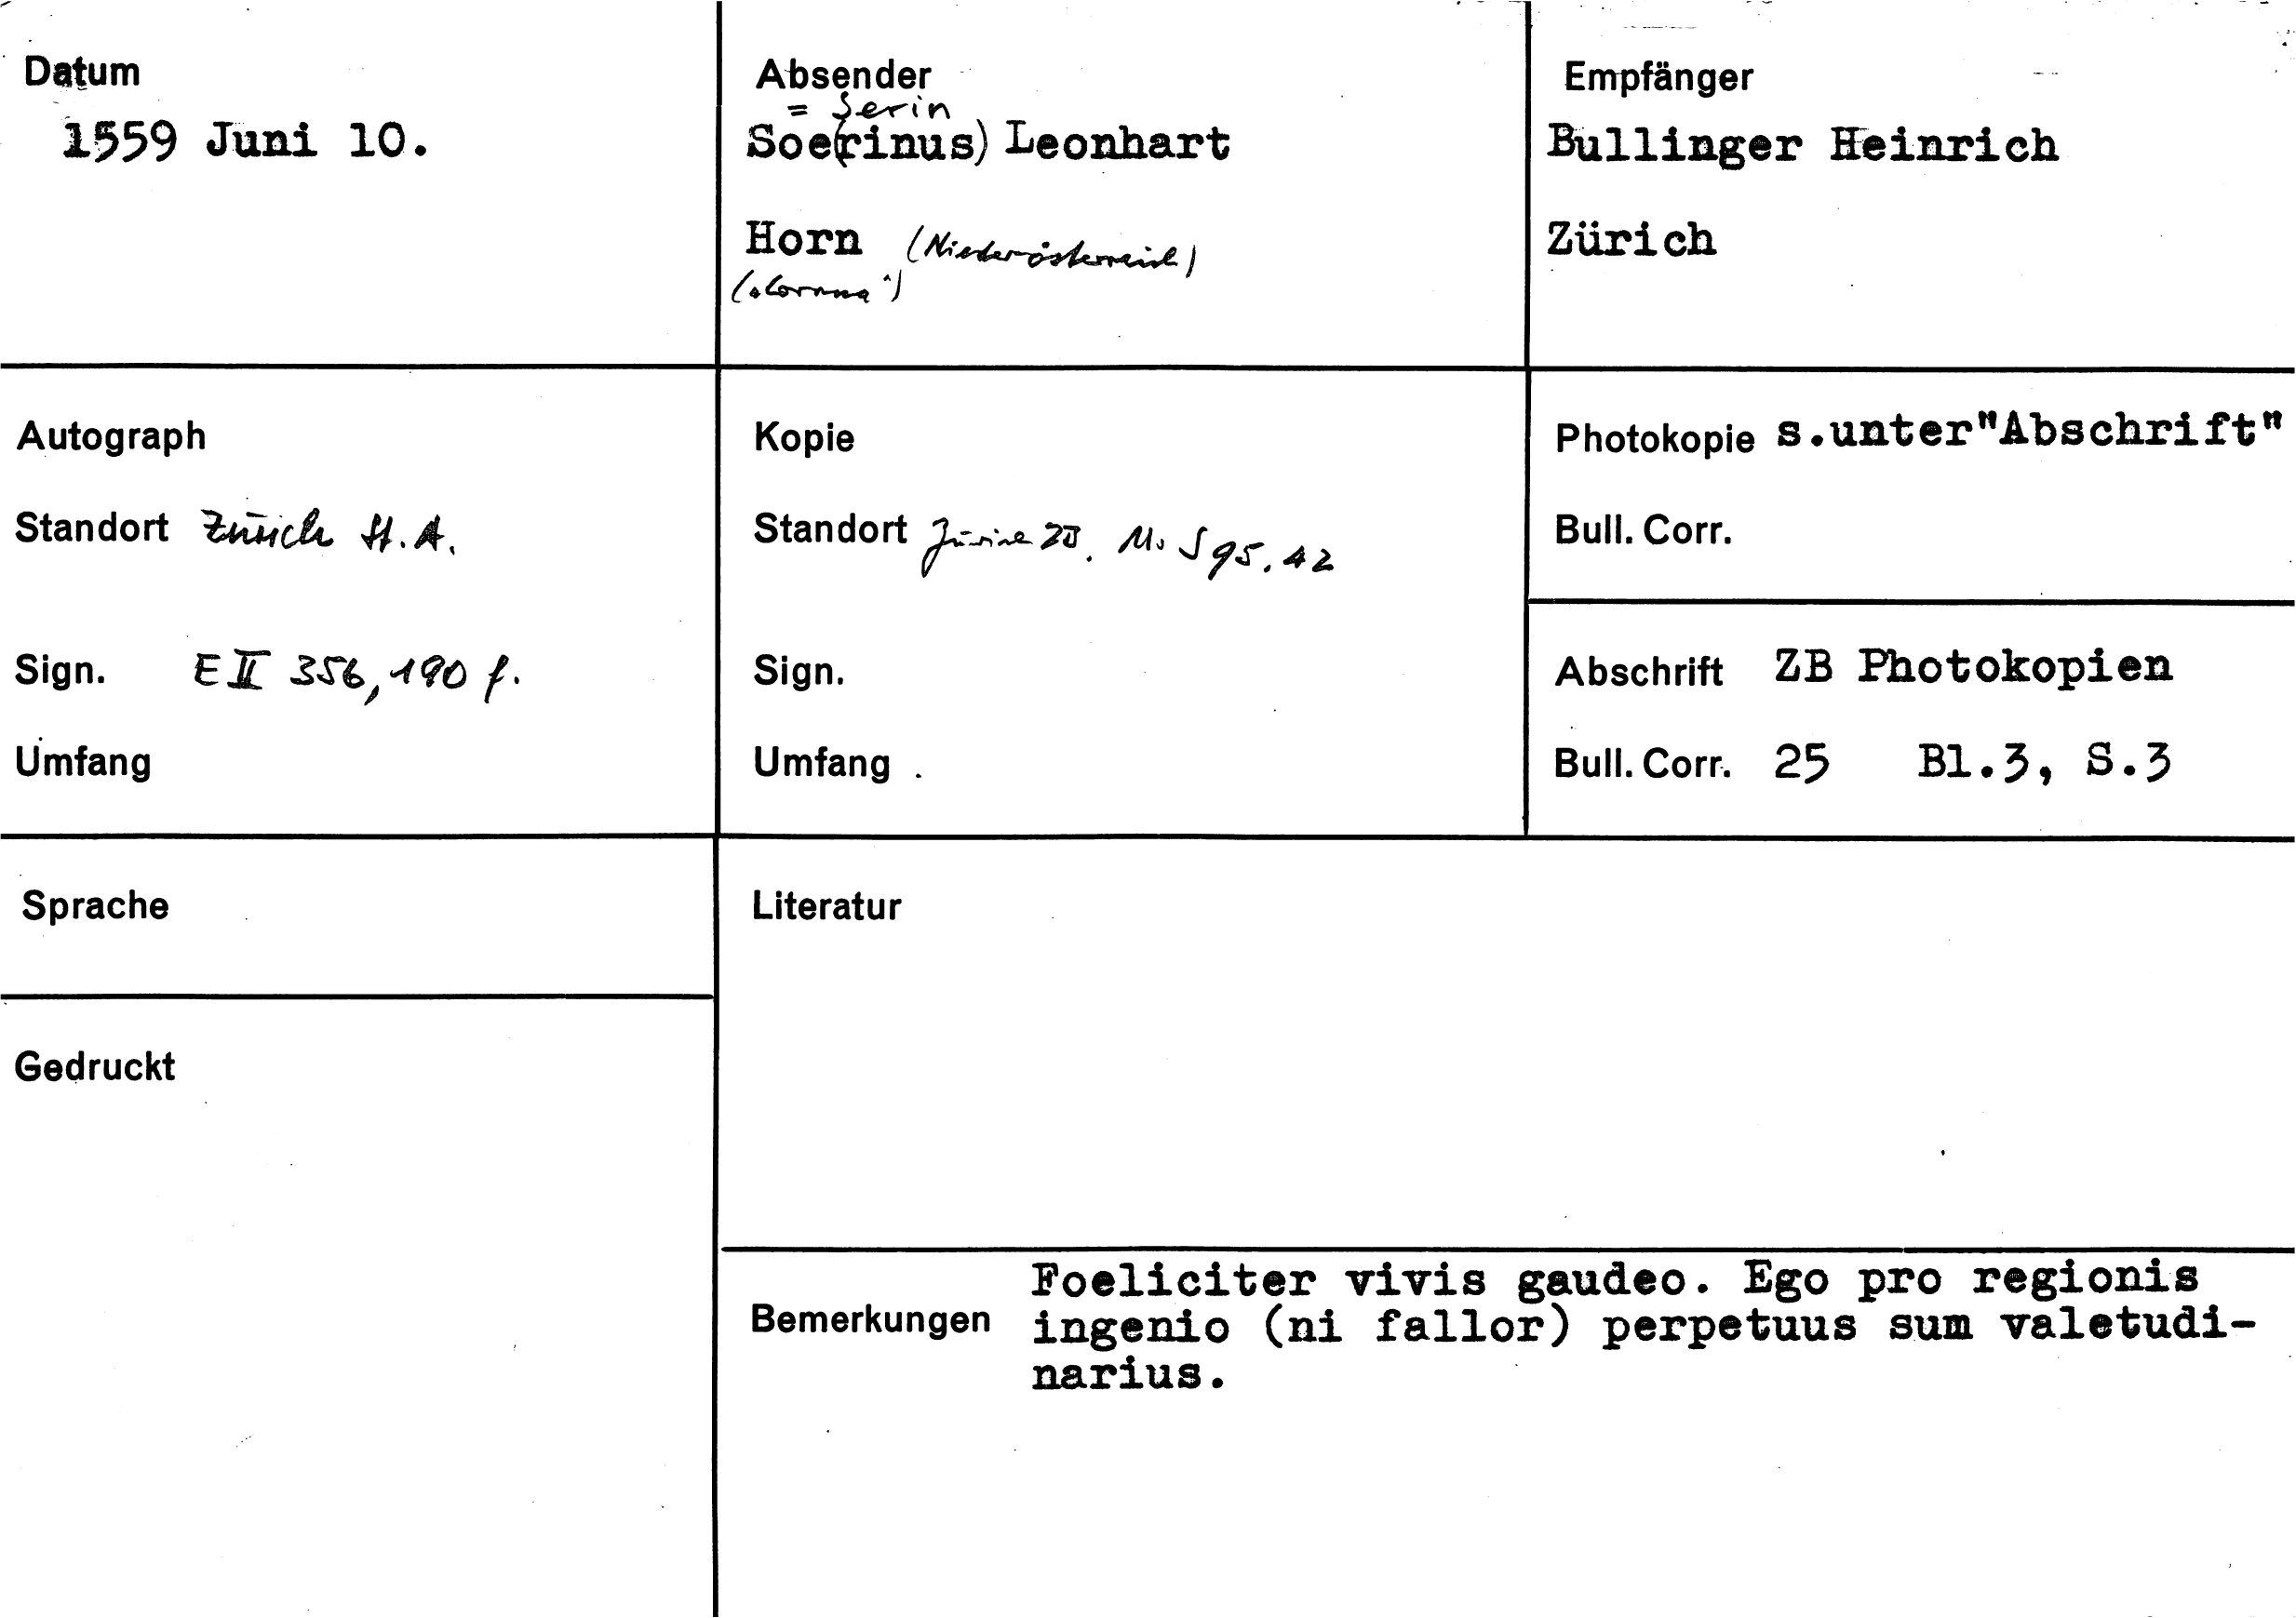 Datum
1559 Juni 10.
Absender
= Serin
Soe(rinus) Leonhart
Horn (Niederösterreich)
Empfänger
Bullinger Heinrich
Zürich
Autograph
Standort Zürich St.A.
Sign. E II 356, 190 f.
Umfang
Kopie
Standort Zürich ZB. Ms S 95.42
Sign.
Umfang
Photokopie s.unter"Abschrift"
Bull. Corr.
Abschrift ZB Photokopien
Bull. Corr. 25 Bl.3, S.3
Sprache
Gedruckt
Literatur
Bemerkungen
Foeliciter vivis gaudeo. Ego pro regionis
ingenio (ni fallor) perpetuus sum valetudi-
narius.